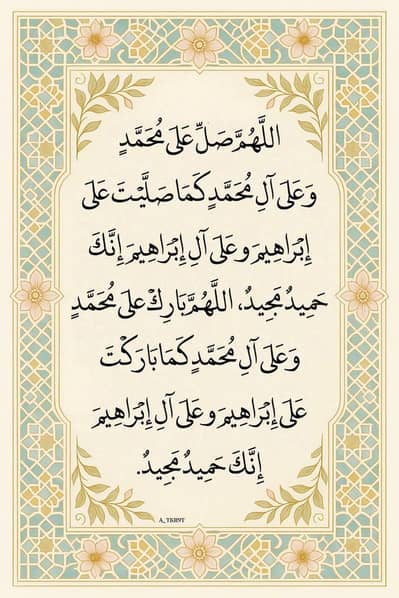 اللَّهُمَّ صَلِّ عَلَى مُحَمَّدٍ
وَعَلَى آلِ مُحَمَّدٍ كَمَا صَلَّيْتَ عَلَى
إِبْرَاهِيمَ وَعَلَى آلِ إِبْرَاهِيمَ إِنَّكَ
حَمِيدٌ مَجِيدٌ، اللَّهُمَّ بَارِكْ عَلَى مُحَمَّدٍ
وَعَلَى آلِ مُحَمَّدٍ كَمَا بَارَكْتَ
عَلَى إِبْرَاهِيمَ وَعَلَى آلِ إِبْرَاهِيمَ
إِنَّكَ حَمِيدٌ مَجِيدٌ.